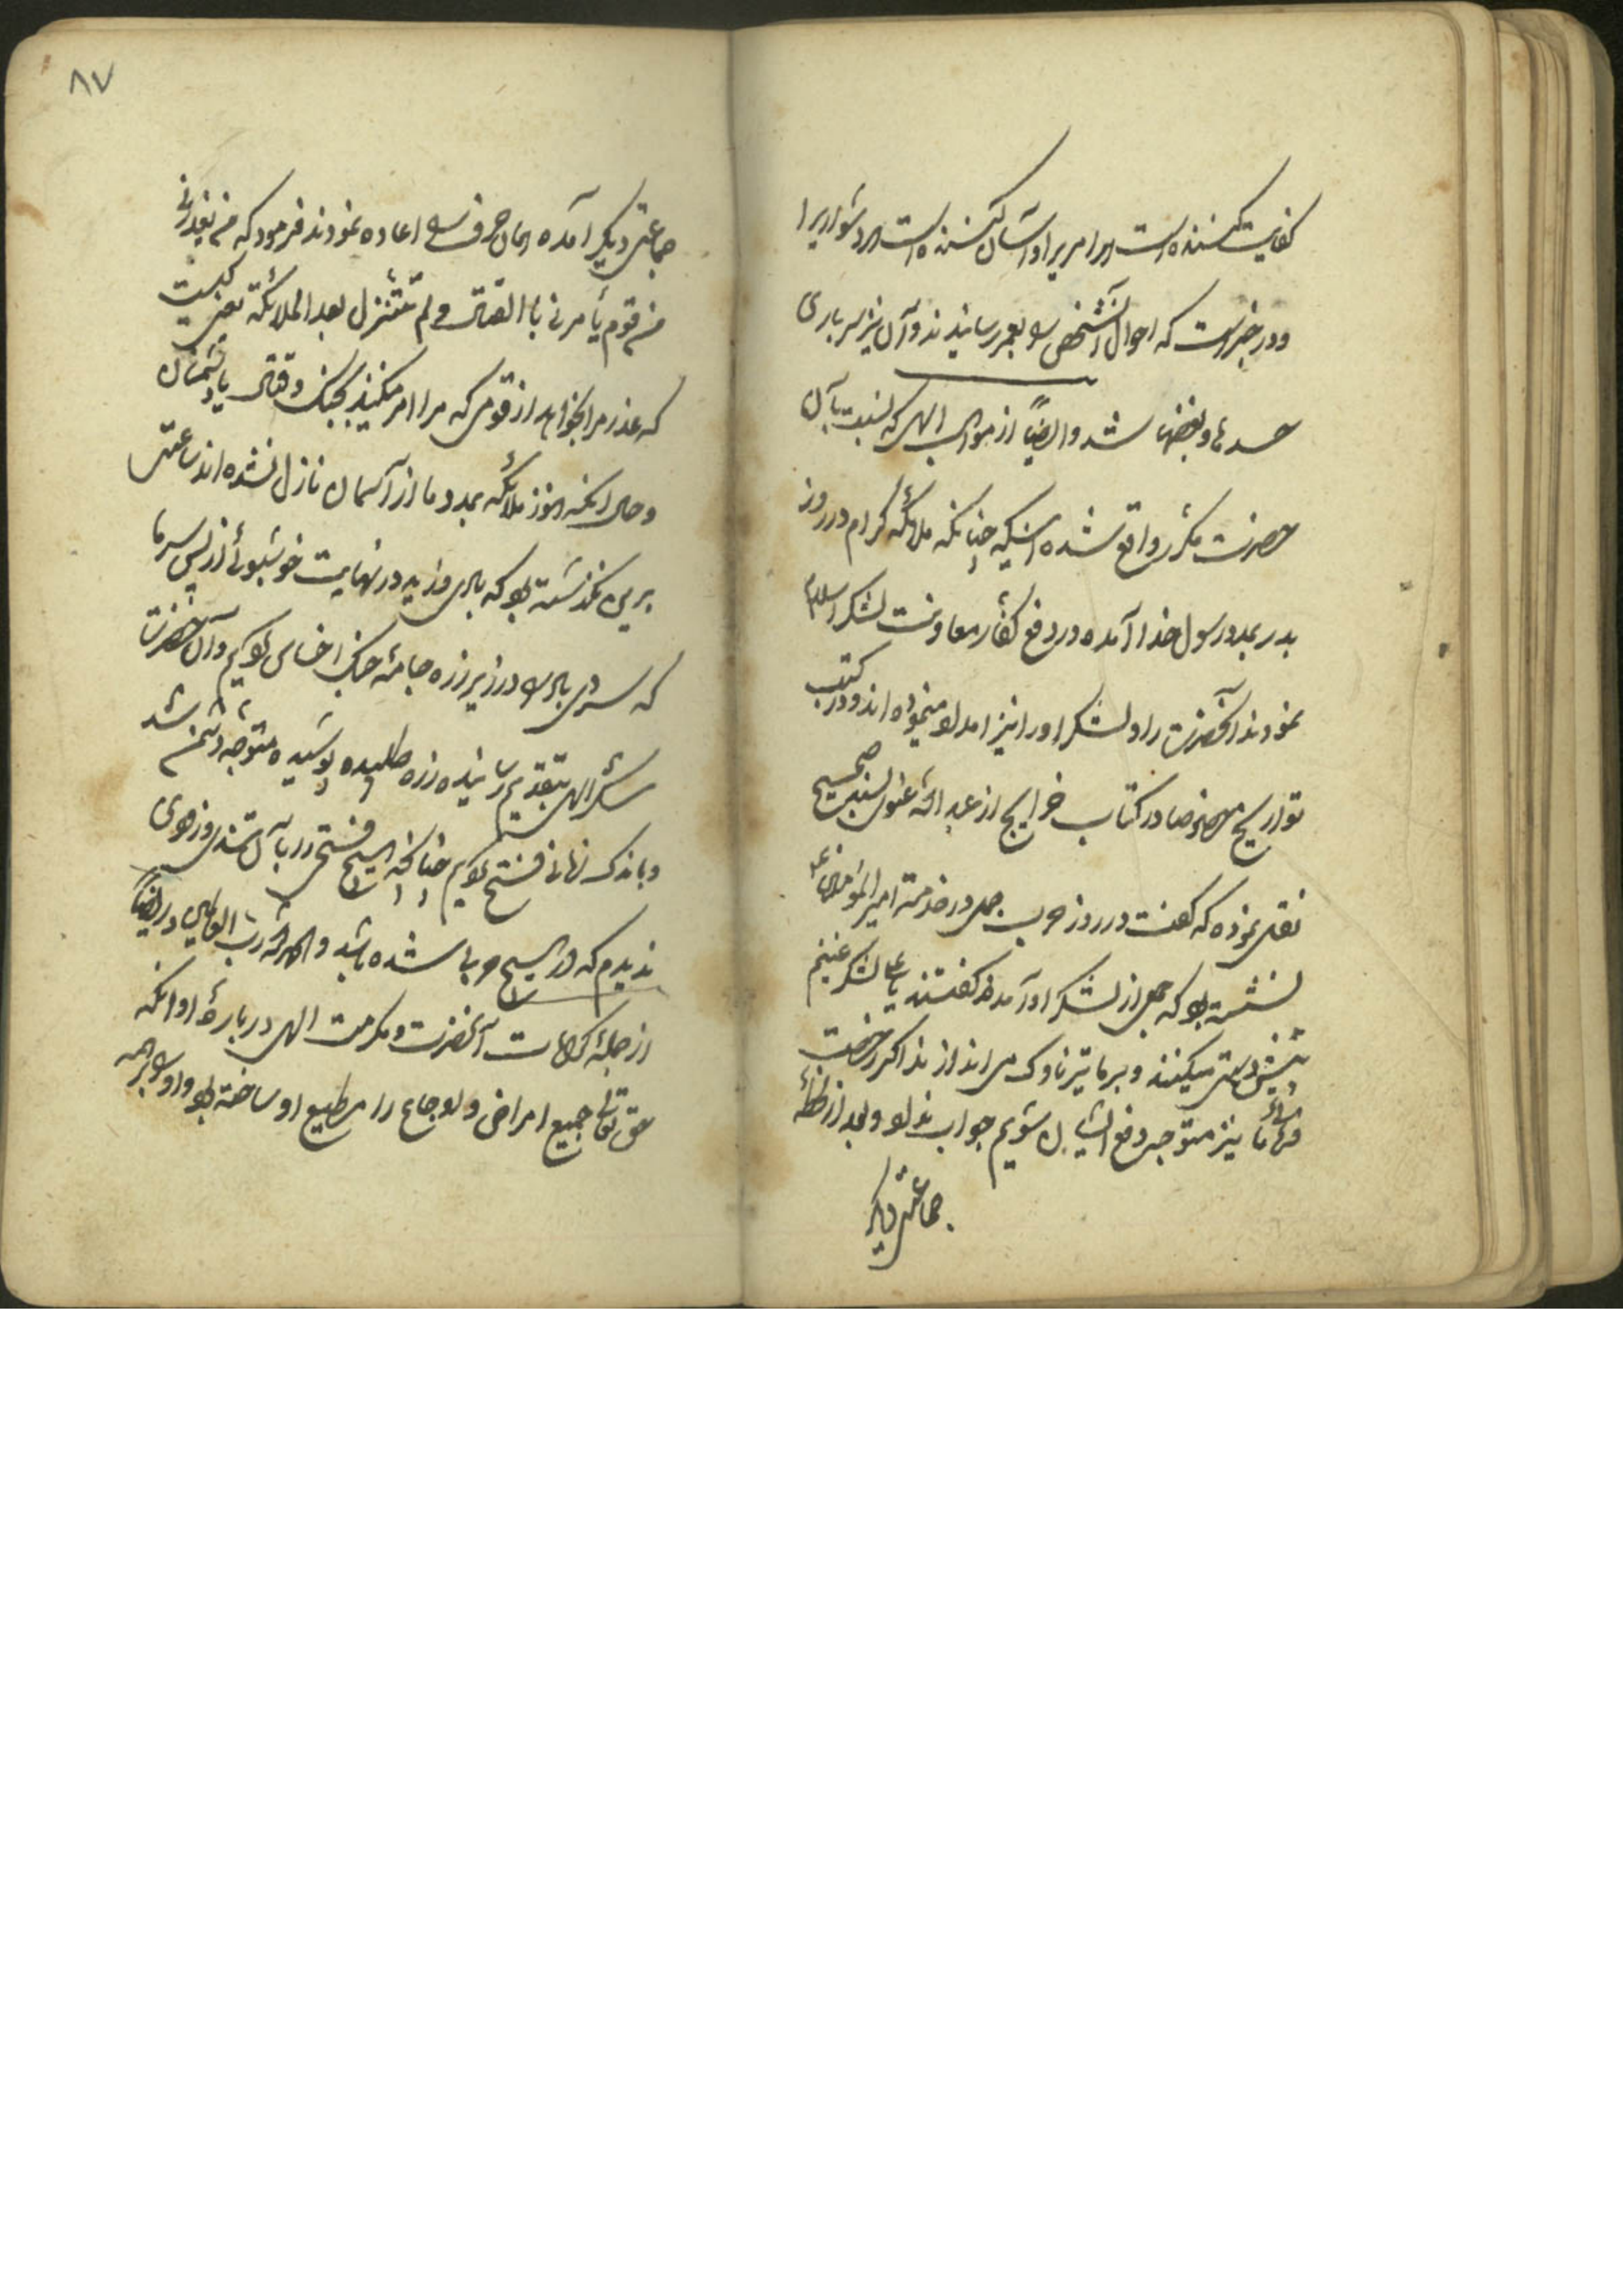 کفایت کننده است هر امریرا و آسان کننده است هر دشواریرا
و در خبر است که احوال آنشخص را بعمر رسانیدند و آن نیز سرباری
حسدها و بغضها شد و ایضاً از مواهب الهی که نسبت بآن
حضرت مکرر واقع شده اینکه چنانکه ملائکه کرام در روز
بدر بمدد رسول خدا آمده در دفع کفار معاونت لشکر اسلام
نمودند آنحضرت را و لشکر او را نیز امداد مینموده اند و در کتب
تواریخ خصوصا در کتاب خرایج از عبد الله عنوی بسند صحیح
نقل نموده که گفت در روز حرب جمل در خدمت امیر المؤمنین ع
نشسته بود که جمعی از لشکر او آمدند گفتند یا علی لشکر غنیم
پیش دستی میکنند و بر ما تیر ناوک می اندازند اگر رخصت
فرمائی ما نیز متوجه دفع ایشان شویم جواب نداد و بعد از لحظهٔ
جماعتی دیگر
۸۷
جماعتی دیگر آمده همان حرف را اعاده نمودند فرمود که من یعذرنی
من قوم یأمرنی بالقتال و لم تتنزل بعد الملائکة یعنی کیست
که عذر مرا بخواهد از قومی که مرا امر میکنند بجنک و قتال با دشمنان
و حال انکه هنوز ملائکه بمدد ما از آسمان نازل نشده اند ساعتی
برین نگذشته بود که بادی وزید در نهایت خوشبوئی از پس سر ما
که سردی باد را در زیر زره و جامهٔ جنک احساس کردیم و آن حضرت
شکر الهی بتقدیم رسانیده زره طلبیده پوشیده متوجه دشمن شد
و باندک زمانی فتح کردیم چنانچه هیچ فتحی را بآن تندی و زودی
ندیدم که در هیچ حربی شده باشد و الحمد لله رب العالمین و ایضاً
از جملهٔ کرامات آنحضرت و مکرمت الهی در بارهٔ او انکه
حق تعالی جمیع امراض و اوجاع را مطیع او ساخته بود و او را بر همه